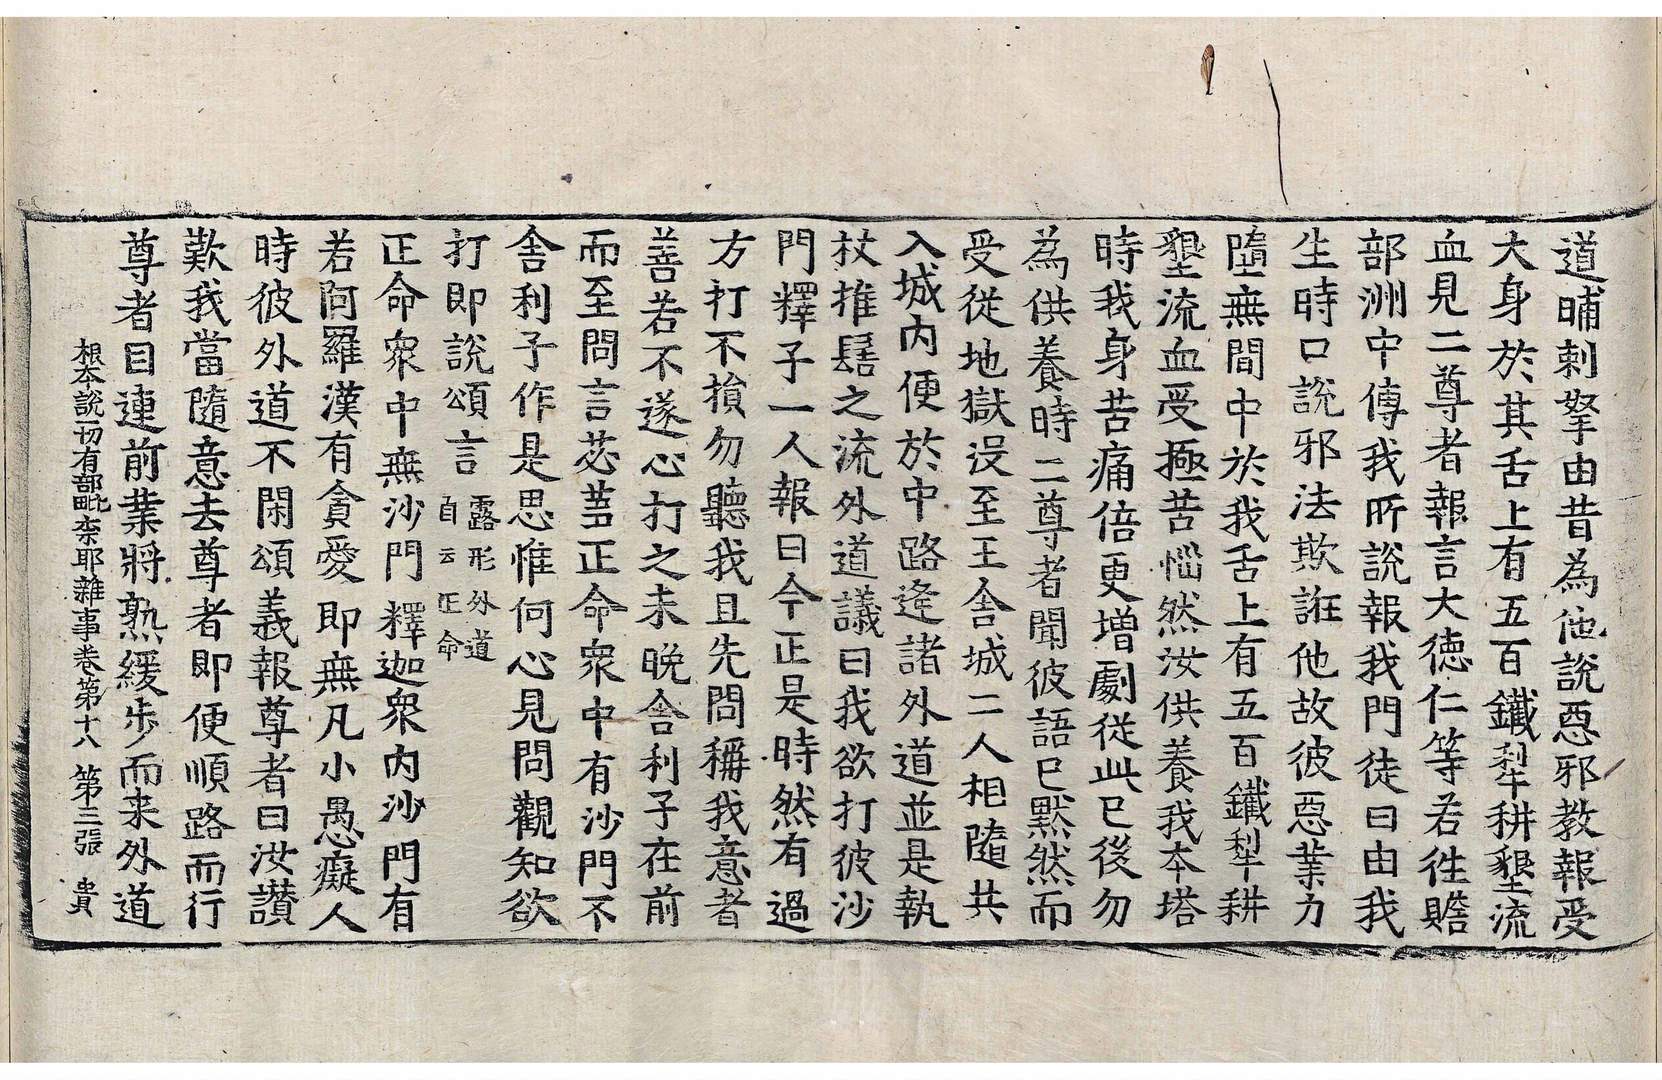 道晡剌拏由昔為他說惡邪教報受
大身於其舌上有五百鐵犁耕墾流
血見二尊者報言大德仁等若往贍
部洲中傳我所說報我門徒曰由我
生時口說邪法欺誑他故彼惡業力
墮無間中於我舌上有五百鐵犁耕
墾流血受極苦惱然汝供養我本塔
時我身苦痛倍更增劇從此已後勿
為供養時二尊者聞彼語已默然而
受從地獄沒至王舍城二人相隨共
入城內便於中路逢諸外道並是執
杖推髻之流外道議曰我欲打彼沙
門釋子一人報曰今正是時然有過
方打不損勿聽我且先問稱我意者
善若不遂心打之未晚舍利子在前
而至問言苾芻正命衆中有沙門不
舍利子作是思惟何心見問觀知欲
打即說頌言 露形外道自云正命
正命衆中無沙門 釋迦衆內沙門有
若阿羅漢有貪愛 即無凡小愚癡人
時彼外道不閑頌義報尊者曰汝讚
歎我當隨意去尊者即便順路而行
尊者目連前業將熟緩步而来外道
根本說一切有部毗奈耶雜事卷第十八 第三張 貴